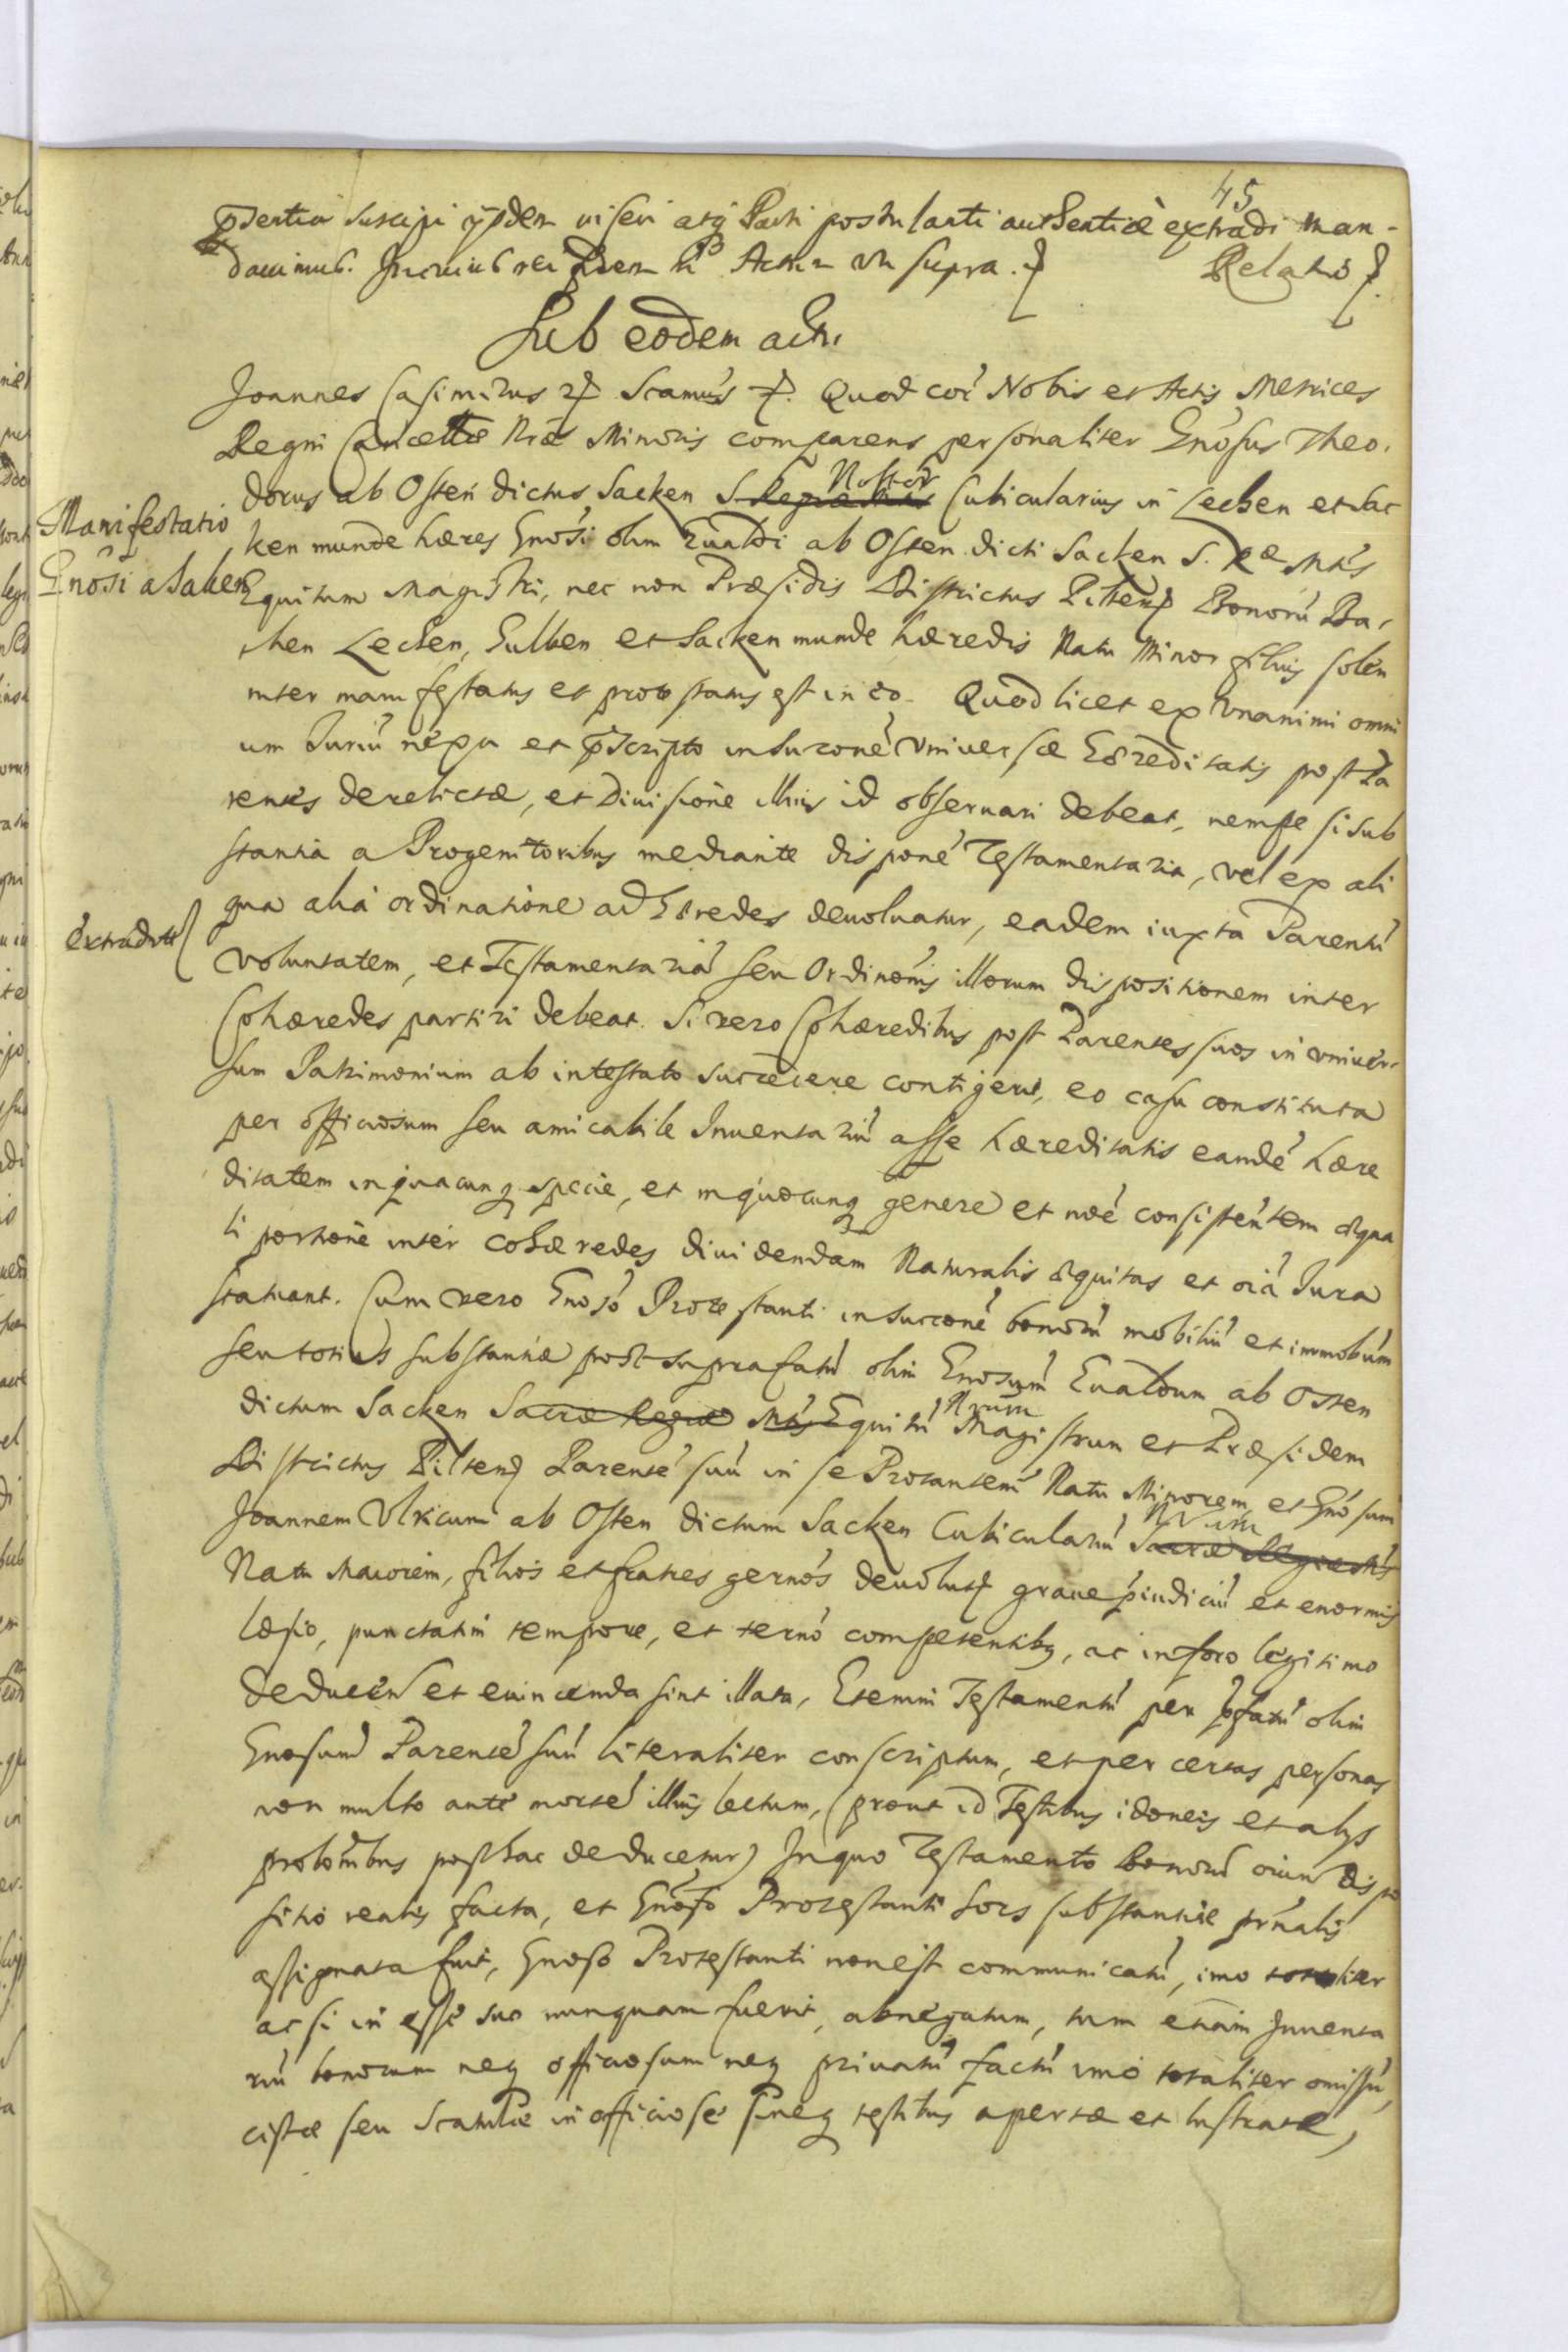 45
suscipi ijsdem atq Parti postulanti authenticè extradi man-
dauimus. In cuius rei fidem Actum ut supra.
Relatio
Sub eodem actu
Joannes Casimirus Quod cor Nobis et Actis Metrices
Regni Cancellariæ Nræ Minoris comparens personaliter Gnosus Theo-
dorus ab Osten dictus Sacken S Regiæ Mtis Noster Cubicularius in Lechen et Sac
Manifestatio
ken munde hæres Gnosi olim Eualdi ab Osten dicti Sacken S. Ræ Mtis
Gnosi a Saken
Equitum Magistri, nec non Præsidis Districtus Pilten Bonorū Ba-
then Lechen, Gulben et Sacken munde hæredis Natu Minor filius solen
niter manifestatus et protestatus est in eo. Quod licet ex Vnanimi omni
um Juriū nexu et præscripto in succone Vniuersæ Hæreditatis post Pa
rentes derelictæ, et Diuisione illius id obseruari debeat, nempe si sub
stantia a Progenitoribus mediante dispone Testamentaria, vel ex ali
qua alia ordinatione ad Hæredes deuoluatur, eadem iuxta Parentū
extradit
voluntatem, et Testamentariā seu Ordinonis illorum dispositionem inter
Cohæredes partiri debeat. Si vero Cohæredibus post Parentes suos in vniuer-
sum Patrimonium ab intestato succedere contigerit, eo casu constituta
per officiosum seu amicabile Inuentariū asse hæreditatis eandē hære
ditatem in quacunq specie, et in quocunq genere et noē consistentem æqua
li portione inter cohæredes diuidendam Naturalis æquitas et oia Jura
statuant. Cum vero Gnoso Protestanti in succone bonorū mobiliū et immobiliū
seu totius substantiæ post supra fatū olim Gnosum Eualdum ab Osten
dictum Sacken Sacræ Regiæ Mtis Equitū Nrum Magistrum et Præsidem
Districtus Pilten Parentē suū in se Protantem Natu Minorem et Gnosum
Joannem Vlricum ab Osten dictum Sacken Cubiculariū Nrum Sacræ Regiæ Mtis
Natu Maiorem, filios et fratres gernos deuolut graue piudiciū et enormis
læsio, punctatim tempore, et termo competentibq, ac in foro legitimo
deducen et euincenda sint illata, Etenim Testamentū per pfatū olim
Gnosum Parentē suū literaliter conscriptum, et per certas personas
non multo ante mortē illius lectum, (prout id Testibus idoneis et alijs
probombus posthac deducetur) In quo Testamento bonorū oium dispo
sitio realis facta, et Gnoso Protestanti sors substantiæ prnalis
assignata fuit, Gnoso Protestanti non est communicatū, imo totaliter
ac si in esse suo nunquam fuerit, abnegatum, tum etiam Inuenta
riū bonorum neq officiosum neq priuatū factū imo totaliter omissū,
cistæ seu Scatulæ inofficiose sineq testibus apertæ et lustratæ,